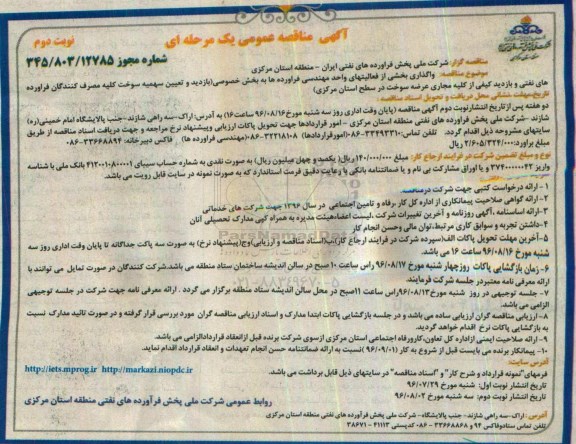 آگهی مناقصه عمومی یک مرحله ای
نوبت دوم
شماره مجوز ۳۴۵/۸۰۳/۱۲۷۸۵
مناقصه گزار: شرکت ملی پخش فراورده های نفتی ایران - منطقه استان مرکزی
موضوع مناقصه: واگذاری بخشی از فعالیتهای واحد مهندسی فراورده ها به بخش خصوصی(بازدید و تعیین سهمیه سوخت کلیه مصرف کنندگان فراورده
های نفتی و بازدید کیفی از کلیه مجاری عرضه سوخت در سطح استان مرکزی)
تاریخ،مهلت،نشانی محل دریافت و تحویل اسناد مناقصه:
دو هفته پس از تاریخ انتشارنوبت دوم آگهی مناقصه (پایان وقت اداری روز سه شنبه مورخ ۹۶/۰۸/۱۶ ساعت ۱۶) به آدرس: اراک-سه راهی شازند-جنب پالایشگاه امام خمینی(ره)
شازند -شرکت ملی پخش فراورده های نفتی منطقه استان مرکزی - امور قراردادها جهت تحویل پاکات ارزیابی وپیشنهاد نرخ مراجعه و جهت دریافت اسناد مناقصه از طریق
سایتهای مشروحه ذیل اقدام گردد. تلفن تماس: ۳۳۴۹۳۳۱۰-۰۸۶(امورقراردادها) ۳۲۲۱۸۱۰۸-۰۸۶(مهندسی فراورده ها) فاکس دبیرخانه: ۳۳۶۶۸۸۹۴-۰۸۶
مبلغ برآورد: ۲/۶۰۵/۳۲۴/۰۰۰ ریال
نوع و مبلغ تضمین شرکت در فرایند ارجاع کار: مبلغ ۱۴۰/۰۰۰/۰۰۰ ریال( یکصد و چهل میلیون ریال) به صورت نقدی به شماره حساب سیبای ۴۱۲۰۰۱۰۸۰۰۰۱ بانک ملی با شناسه
واریز ۲۷۴۰۰۰۰۰۰۴۲ و یا اوراق مشارکت بی نام و یا ضمانتنامه بانکی با رعایت دقیق فرمت استاندارد که به صورت نمونه در سایت قابل رویت می باشد.
۱- ارائه درخواست کتبی جهت شرکت درمناقصه
۲- ارائه گواهی صلاحیت پیمانکاری از اداره کل کار ،رفاه و تامین اجتماعی در سال ۱۳۹۶ جهت شرکت های خدماتی
۳- ارائه اساسنامه ،آگهی روزنامه و آخرین تغییرات شرکت ،لیست اعضاءهیئت مدیره به همراه کپی مدارک تحصیلی آنان
۴- داشتن تجربه و سوابق کاری مرتبط،توان مالی وحسن انجام کار
۵-آخرین مهلت تحویل پاکات الف(سپرده شرکت در فرایند ارجاع کار)ب(اسناد مناقصه و ارزیابی)وج(پیشنهاد نرخ) به صورت سه پاکت جداگانه تا پایان وقت اداری روز سه
شنبه مورخ ۹۶/۰۸/۱۶ ساعت ۱۶ می باشد.
۶- زمان بازگشایی پاکات روزچهار شنبه مورخ ۹۶/۰۸/۱۷ راس ساعت ۱۰ صبح در سالن اندیشه ساختمان ستاد منطقه می باشد.شرکت کنندگان در صورت تمایل می توانند با
ارائه معرفی نامه معتبردر جلسه شرکت فرمایند.
۷- جلسه توجیهی در روز شنبه مورخ ۹۶/۰۸/۱۳ راس ساعت ۱۱صبح در محل سالن اندیشه ستاد منطقه برگزار می گردد . ارائه معرفی نامه جهت شرکت در جلسه توجیهی
الزامی می باشد.
۸- ارزیابی مناقصه گران ارزیابی ساده می باشد و در جلسه بازگشایی پاکات ابتدا مدارک و اسناد ارزیابی مناقصه گران مورد بررسی قرار گرفته و در صورت تائید مدارک نسبت
به بازگشایی پاکات نرخ اقدام خواهد گردید.
۹- ارائه صلاحیت ایمنی ازاداره کل تعاون،کارورفاه اجتماعی استان مرکزی ازسوی شرکت برنده قبل ازانعقاد قراردادالزامی می باشد.
۱۰- پیمانکار برنده می بایست قبل از شروع به کار (۹۶/۰۹/۰۱) نسبت به ارائه ضمانتنامه حسن انجام تعهدات و انعقاد قرارداد اقدام نماید.
آدرس سایت: http://iets.mporg.ir http://markazi.niopdc.ir
فرمهای"نمونه قرارداد و شرح کار" و "اسناد مناقصه" در سایتهای ذیل قابل برداشت می باشد.
تاریخ انتشار نوبت اول: شنبه مورخ ۹۶/۰۷/۲۹
تاریخ انتشار نوبت دوم: سه شنبه مورخ ۹۶/۰۸/۰۲
روابط عمومی شرکت ملی پخش فرآورده های نفتی منطقه استان مرکزی
آدرس :اراک-سه راهی شازند- جنب پالایشگاه - شرکت ملی پخش فرآورده های نفتی منطقه استان مرکزی
تلفن تماس ستادوفاکس ۹۴ و ۳۳۶۶۸۸۶۸ - ۰۸۶ کدپستی ۴۱۱۱۳ - ۳۸۶۷۱